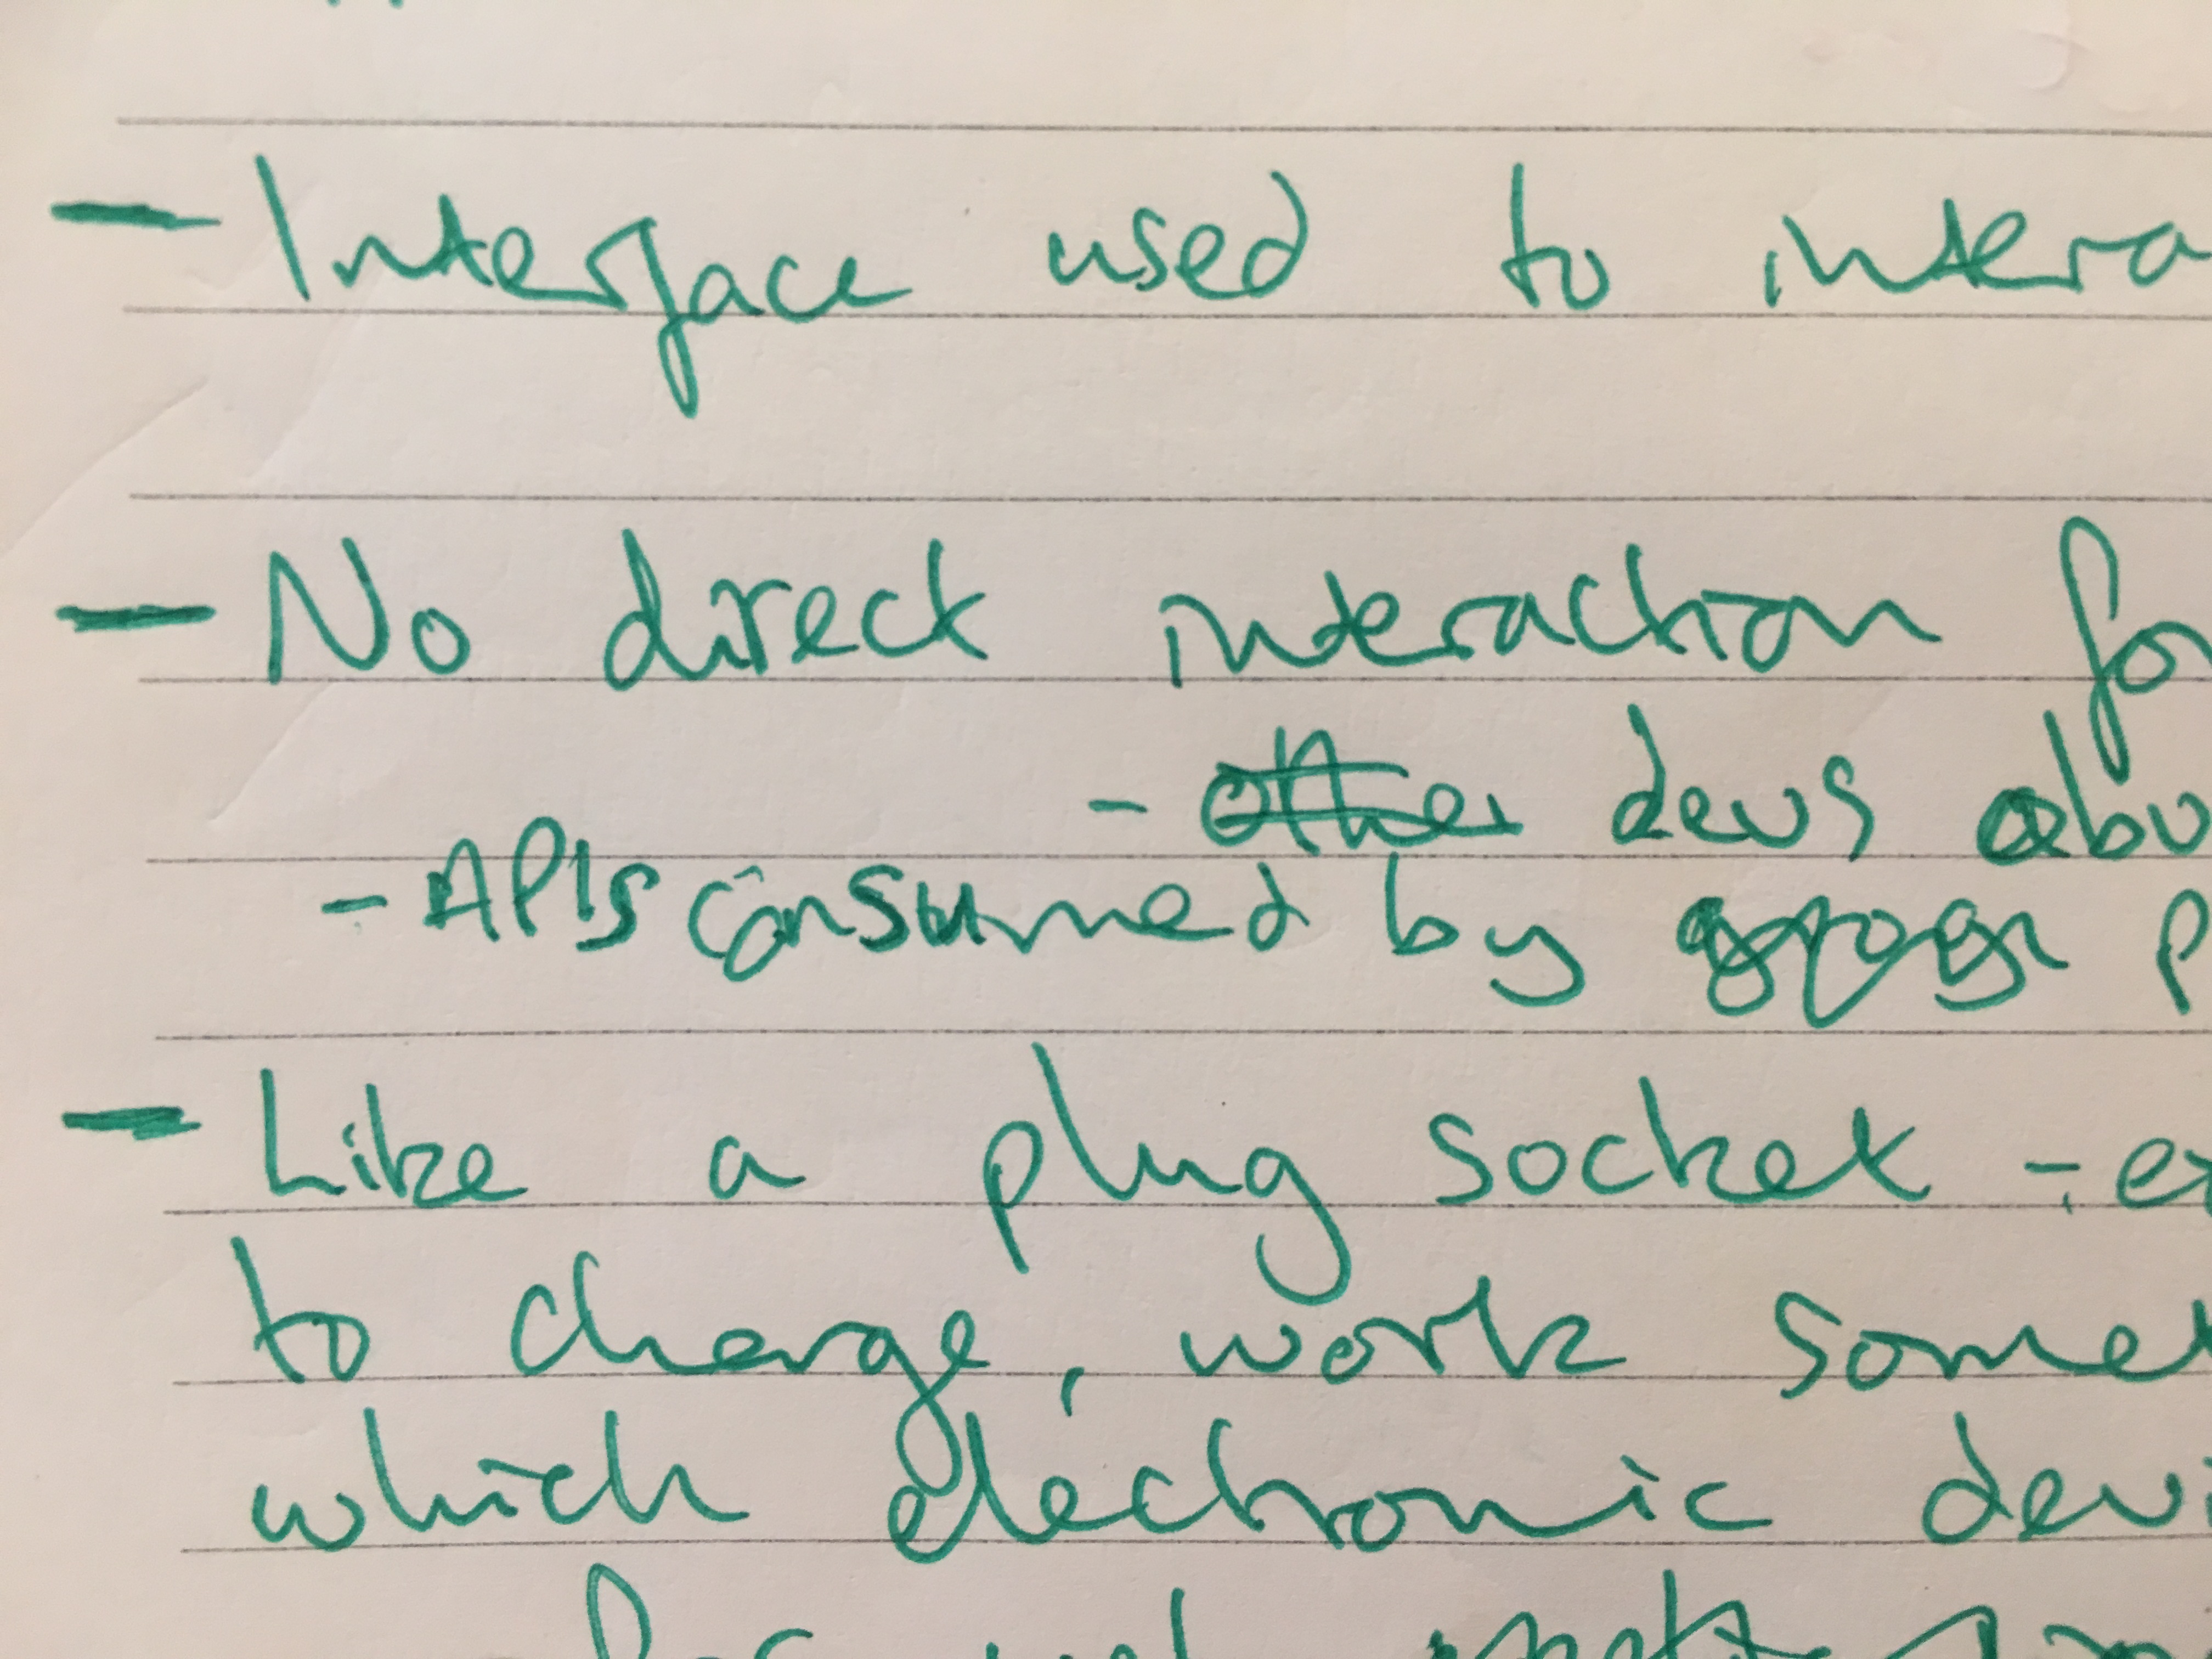 - Interface used to intera
- No direct interaction for
- other devs abu
- APIs consumed by p
- Like a plug socket - ex
to charge, work somet
which electronic devi